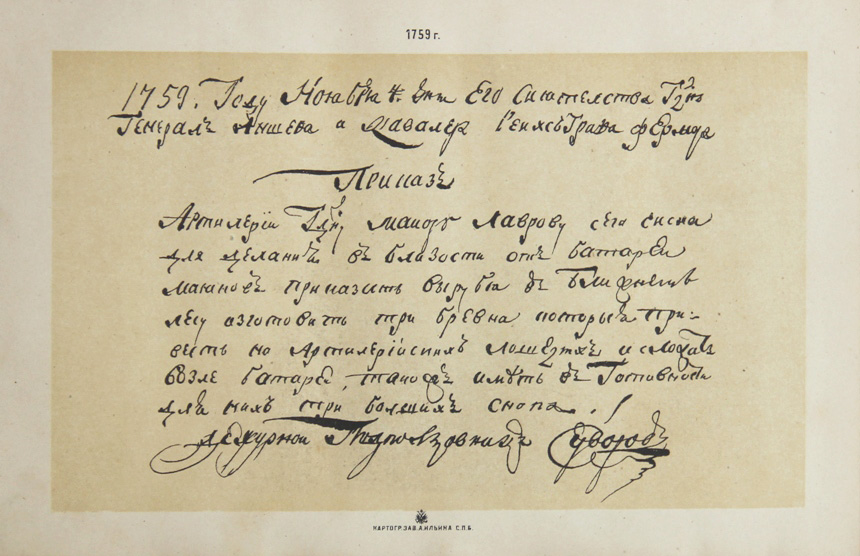 1759 г.
1759. Году Ноября 4. дня Его Сиятелства Гдна
Генералъ Аншефа и Кавалера Графа Фермора
Приказъ
Артилерїи Гдну маиору Лаврову сего числа
для делания въ близости отъ батареи
маяковъ приказать вырубя въ ближнемъ
лесу изготовить три бревна которыя при-
весть на Артилерїйскихъ лошедяхъ и сложить
возле батареи, такожъ иметь въ Готовности
для нихъ три большихъ снопа.
Дежурной Подполковникъ Суворовъ
КАРТОГР. ЗАВ. А. ИЛЬИНА С.П.Б.